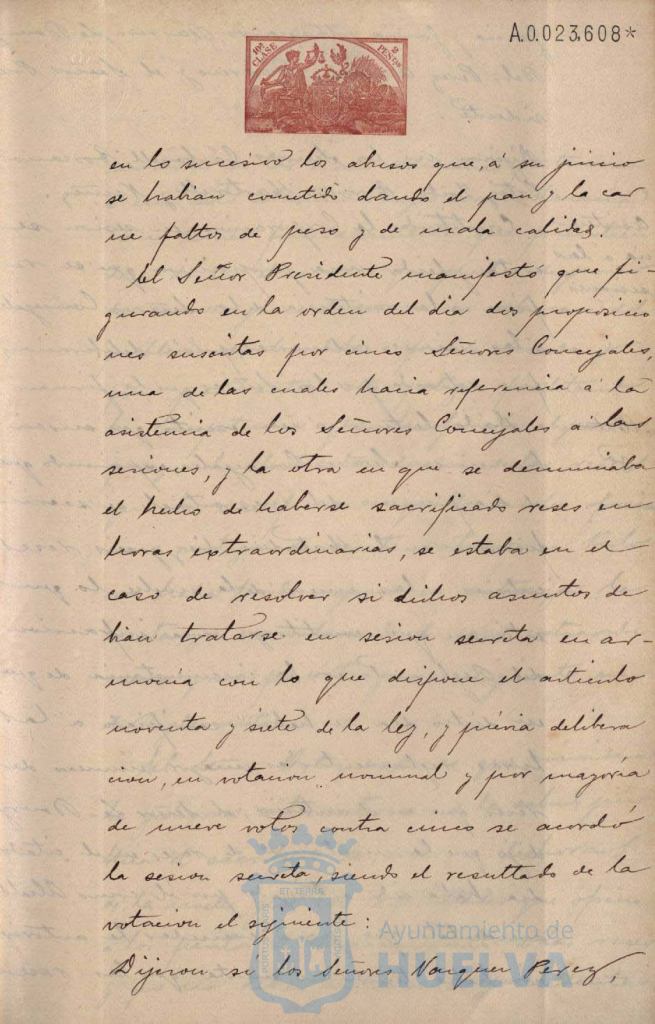 A.0.023.608*
10ª CLASE
2 PESETAS
en lo sucesivo los abusos que, á su juicio
se habian cometido dando el pan y la car
ne faltos de peso y de mala calidad.
El Señor Presidente manifestó que fi-
gurando en la orden del dia dos proposicio
nes suscritas por cinco Señores Concejales,
una de las cuales hacia referencia á la
asistencia de los Señores Concejales á las
sesiones, y la otra en que se denunciaba
el hecho de haberse sacrificado reses en
horas extraordinarias, se estaba en el
caso de resolver si dichos asuntos de
bian tratarse en sesion secreta en ar-
monía con lo que dispone el articulo
noventa y siete de la ley, y prévia delibera
cion, en votacion nominal y por mayoría
de nueve votos contra cinco se acordó
la sesion secreta, siendo el resultado de la
votacion el siguiente:
Dijeron si los Señores Vazquez Perez,
Ayuntamiento de
HUELVA